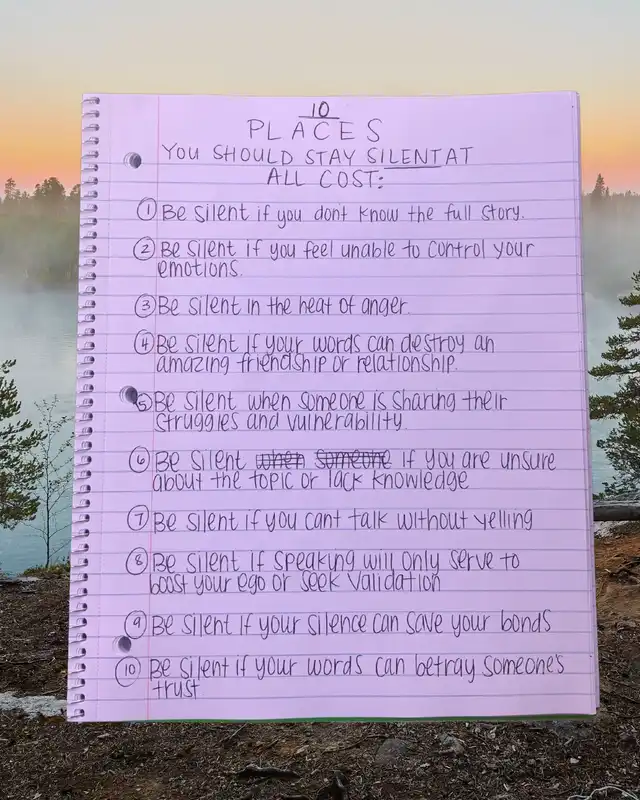 10
PLACES
YOU SHOULD STAY SILENT AT
ALL COST:
① Be silent if you dont know the full story.
② Be silent if you feel unable to control your
emotions.
③ Be silent in the heat of anger.
④ Be silent if your words can destroy an
amazing friendship or relationship.
⑤ Be silent when someone is sharing their
struggles and vulnerability.
⑥ Be silent when someone if you are unsure
about the topic or lack knowledge
⑦ Be silent if you cant talk without yelling
⑧ Be silent if speaking will only serve to
boost your ego or seek validation
⑨ Be silent if your silence can save your bonds
⑩ Be silent if your words can betray someone's
trust